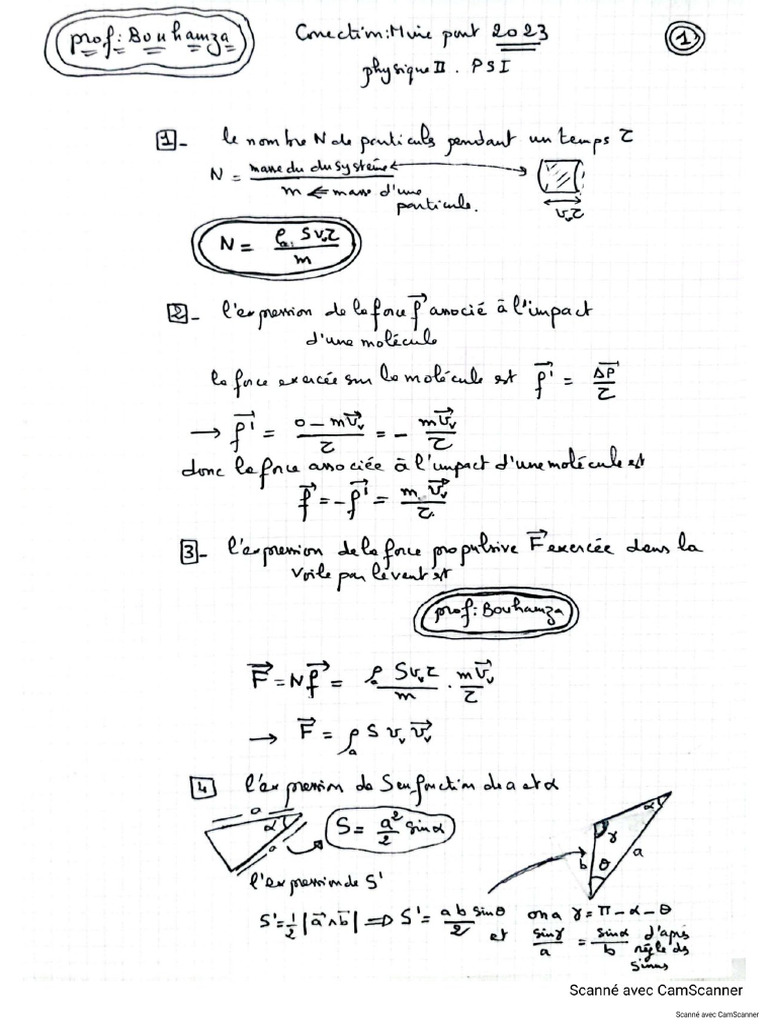 prof: Bouhamza
Correction: Mine pont 2023
①
physique II . PSI
1 - le nombre N de particuls pendant un temps τ
N = masse du du système / m ← masse d'une particule.
v_v τ
N = ρ_a S v_v τ / m
2 - l'expression de la force f⃗ associé à l'impact
d'une molécule
la force exercée sur la molécule est f⃗' = ΔP⃗ / τ
→ f⃗' = (0 - m v⃗_v) / τ = - m v⃗_v / τ
donc la force associée à l'impact d'une molécule est
f⃗ = - f⃗' = m v⃗_v / τ
3 - l'expression de la force propulsive F⃗ exercée dans la
voile par le vent est
prof: Bouhamza
F⃗ = N f⃗ = ρ_a S v_v τ / m . m v⃗_v / τ
→ F⃗ = ρ_a S v_v v⃗_v
4 l'expression de S en fonction de a et α
a
α
a
S = a²/2 sin α
α
γ
b
θ
a
l'expression de S'
S' = 1/2 |a⃗ ∧ b⃗| ⟹ S' = a b sin θ / 2
on a γ = π - α - θ
et sin γ / a = sin α / b d'après
règle des
sinus
Scanné avec CamScanner
Scanné avec CamScanner